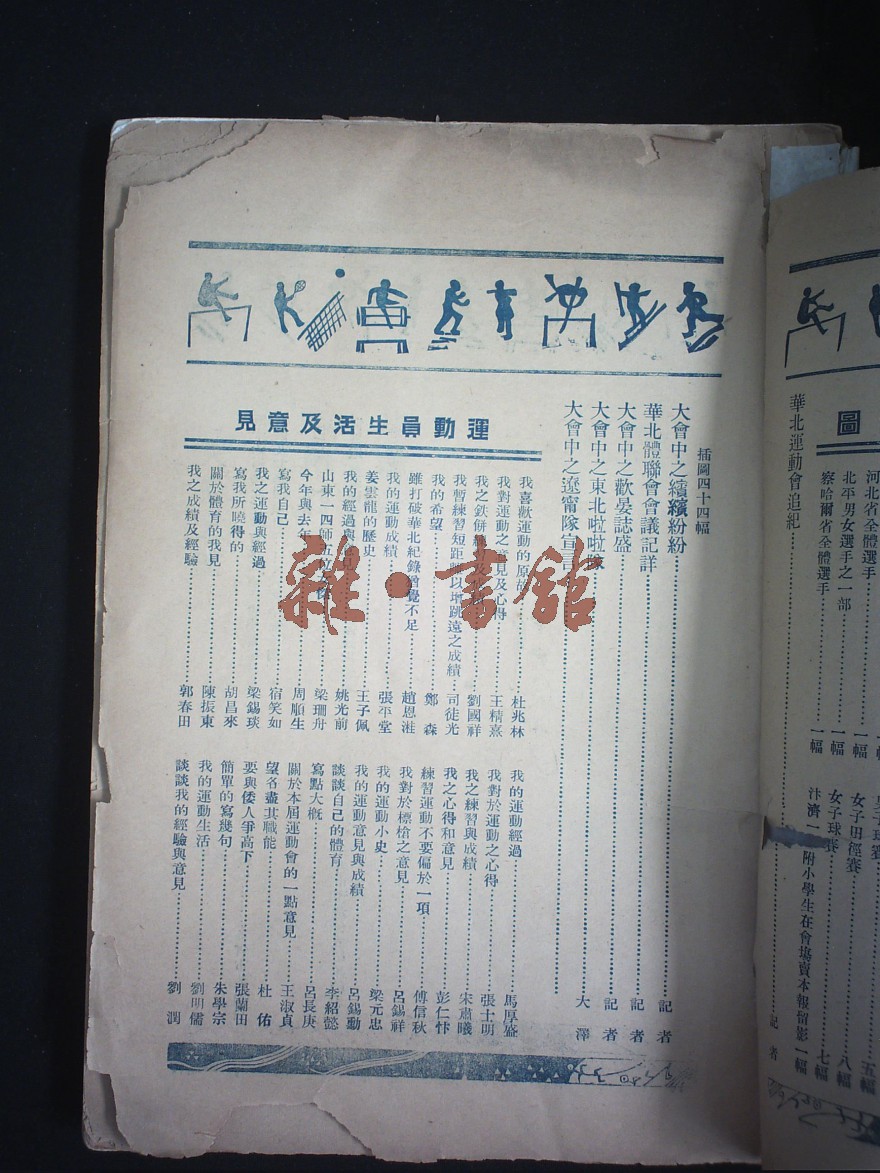 河北省全體選手……一幅
北平男女選手之一部……一幅
察哈爾省全體選手……一幅
女子田徑賽……八幅
女子球賽……七幅
附小學生在會場賣本報留影一幅
華北運動會追紀……記者
圖
插圖四十四幅
大會中之繽繽紛紛……記者
華北體聯會會議記詳……記者
大會中之歡晏誌盛……記者
大會中之東北啦啦隊
大會中之遼甯隊宣……大澤
運動員生活及意見
我喜歡運動的原……杜兆林
我對運動之意見及心得……王精熹
我之鉄餅……劉國祥
我暫練習短距……以增跳遠之成績……司徒光
我的希望……鄭森
雖打破華北紀錄曾覺不足……趙恩溎
我的運動成績……張平堂
姜雲龍的歷史……王子佩
我的經過與……姚光前
山東一四師五立……梁珊舟
今年與去年……周順生
寫我自己……宿笑如
我之運動與經過……梁錫琰
寫我所曉得的……胡昌來
關於體育的我見……陳振東
我之成績及經驗……郭春田
我的運動經過……馬厚盛
我對於運動之心得……張士明
我之練習與成績……宋肅曦
我之心得和意見……彭仁忭
練習運動不要偏於一項……傅信秋
我對於標槍之意見……呂錫祥
我的運動小史……梁元忠
我的運動意見與成績……呂錫勳
談談自己的體育……李紹懿
寫點大概……呂長庚
關於本屆運動會的一點意見……王淑貞
望各盡其職能……杜佑
要與倭人爭高下……張蘭田
簡單的寫幾句……朱學宗
我的運動生活……劉明儒
談談我的經驗與意見……劉潤
雜·書館